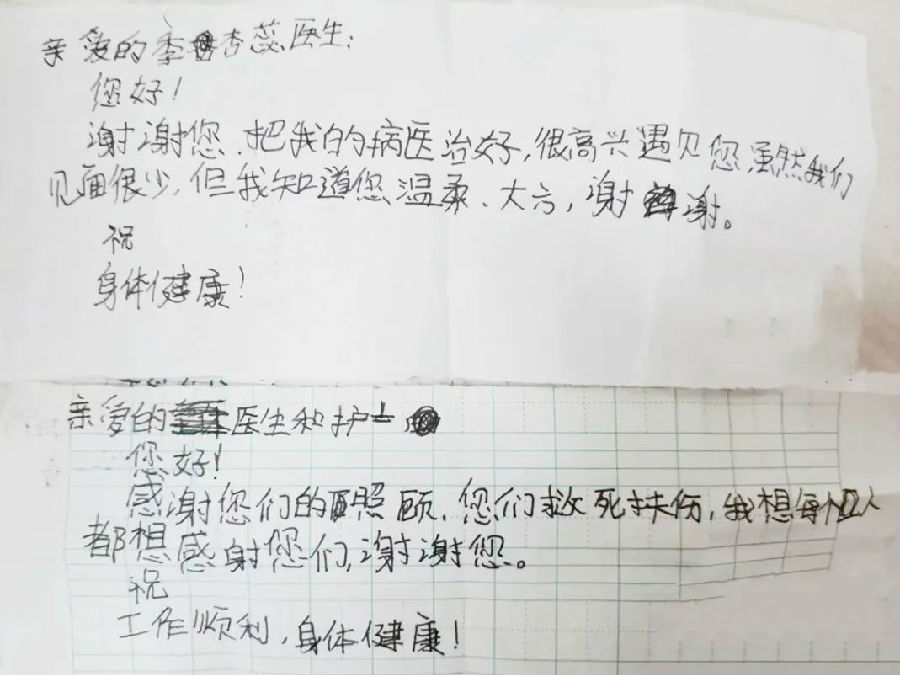 亲爱的李杏蕊医生:
您好!
谢谢您,把我的病医治好,很高兴遇见您,虽然我们
见面很少,但我知道您温柔、大方,谢谢。
祝
身体健康!
亲爱的医生和护士
您好!
感谢您们的照顾,您们救死扶伤,我想每个人
都想感谢您们,谢谢您。
祝
工作顺利,身体健康!